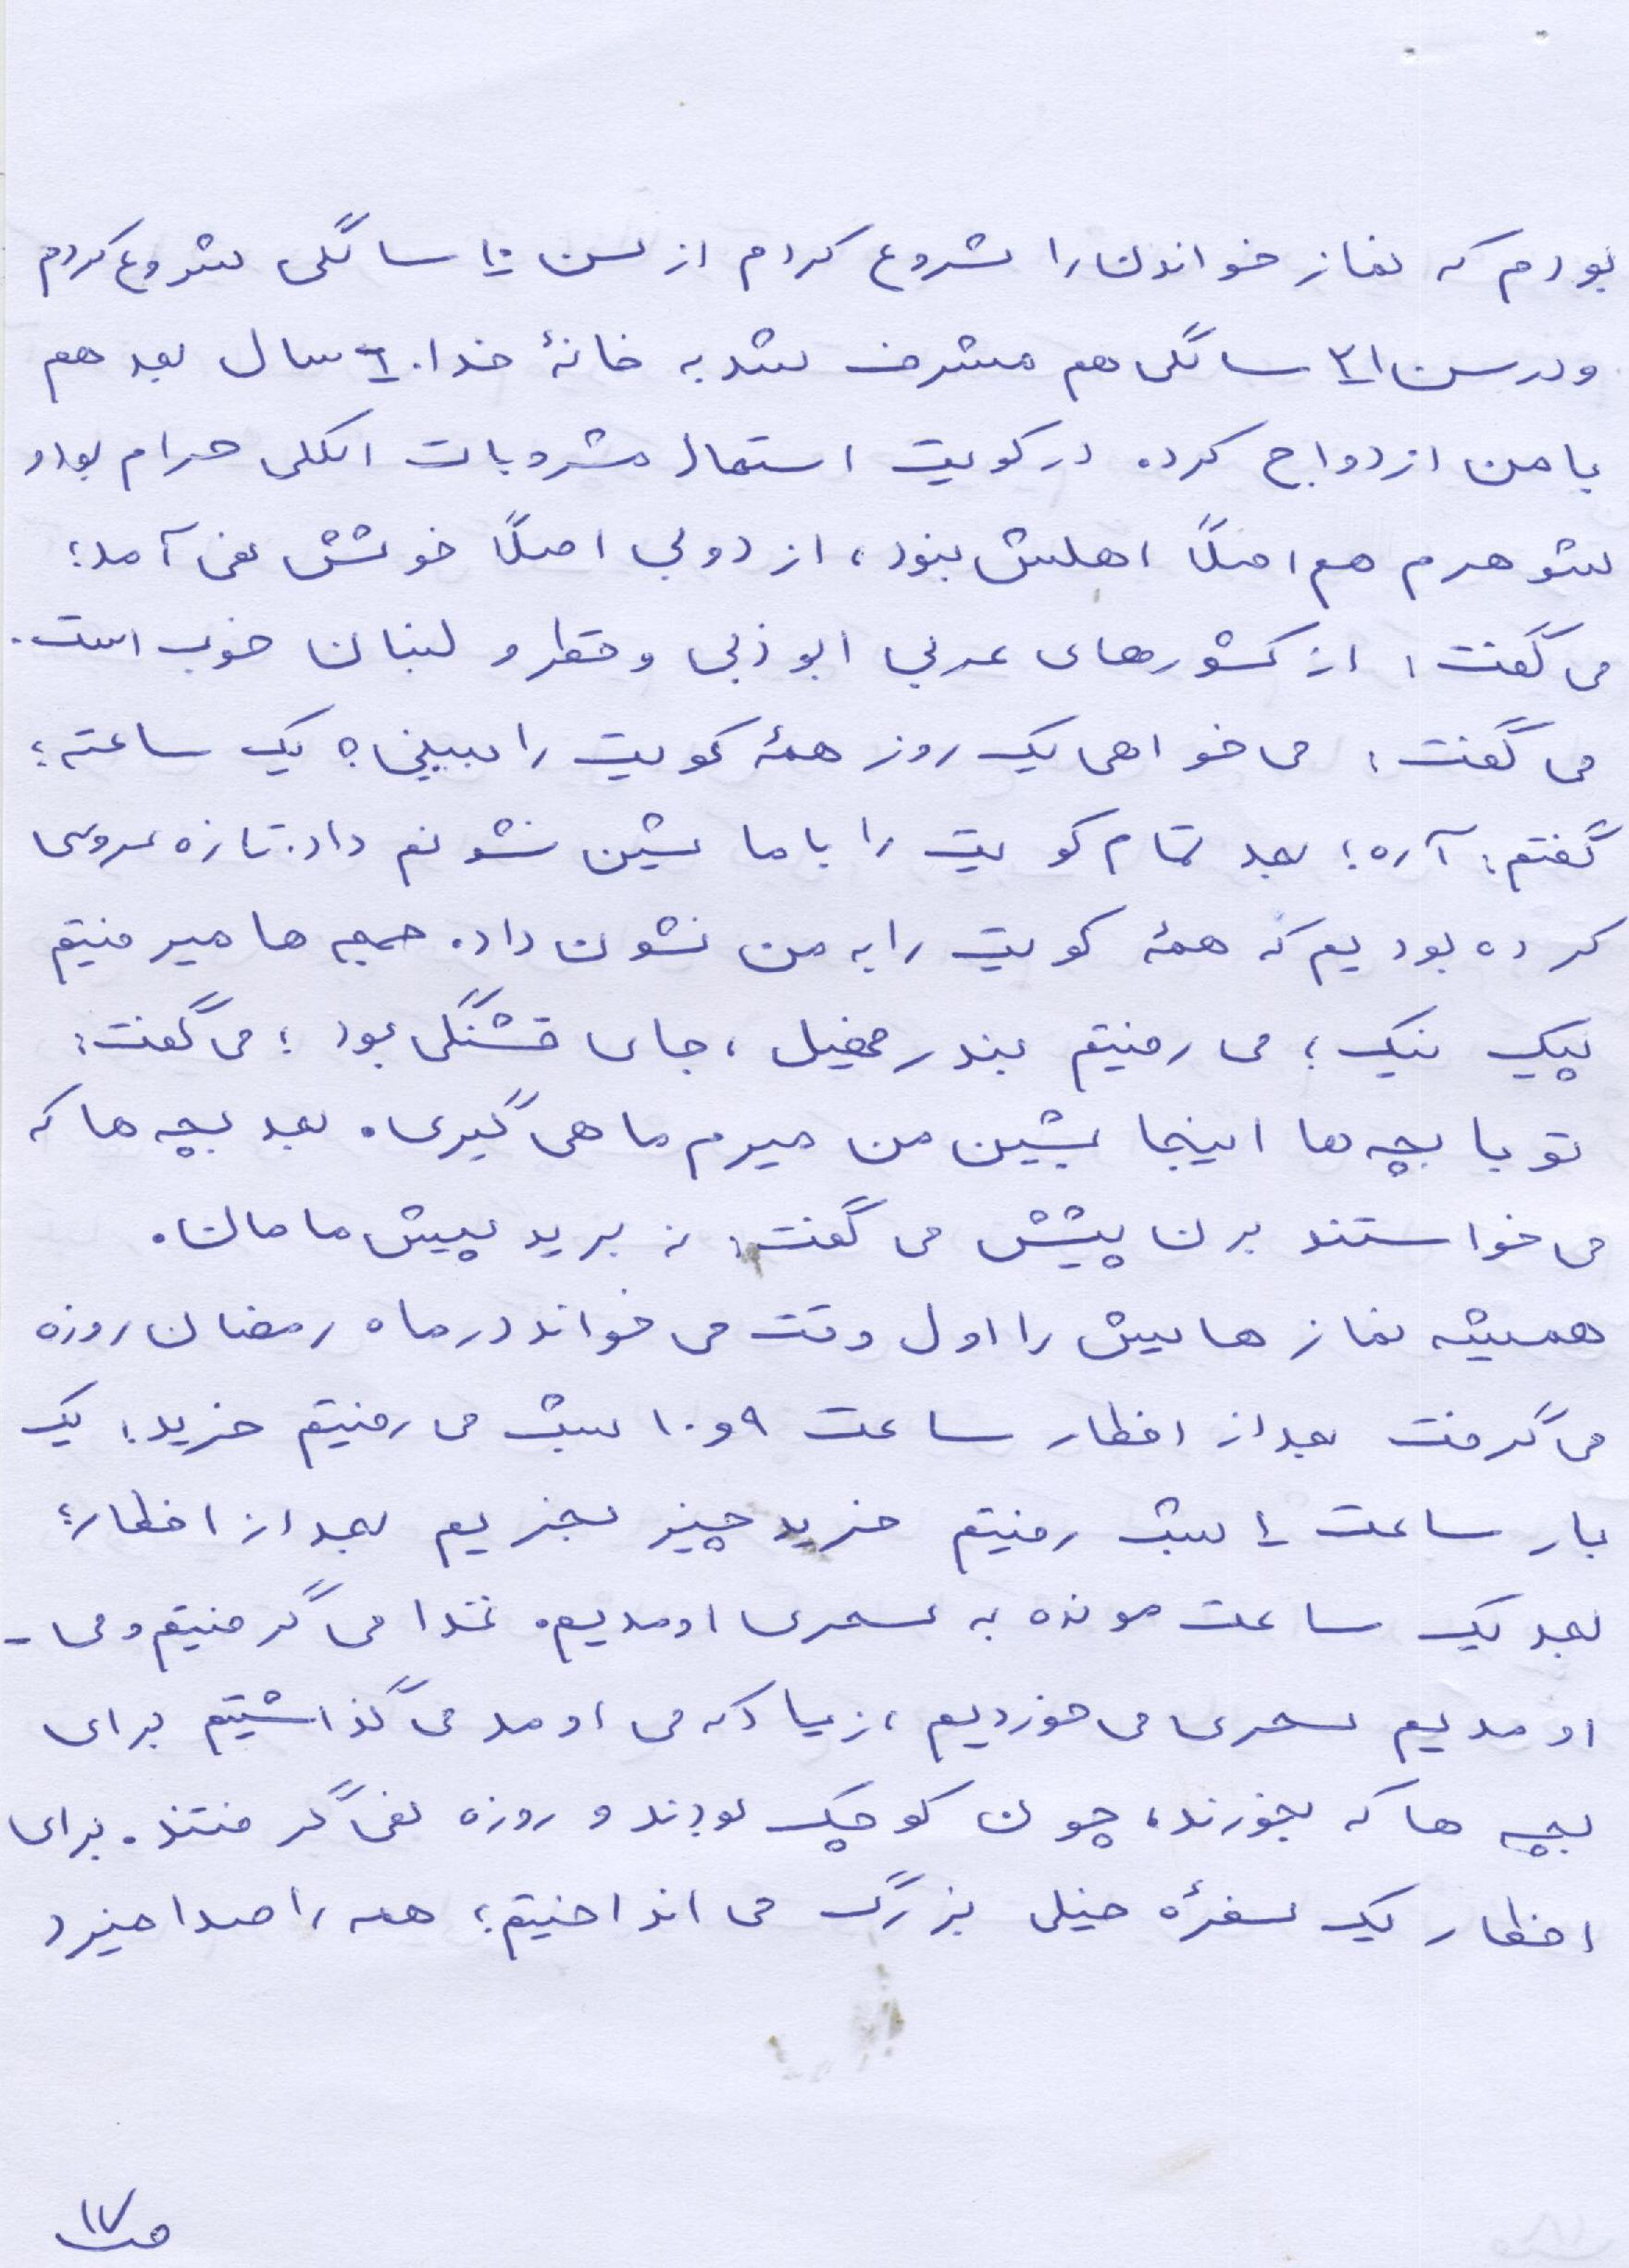 بودم که نماز خواندن را شروع کردم از سن ۱۰ سالگی شروع کردم
و در سن ۲۱ سالگی هم مشرف شد به خانهٔ خدا. ۶ سال بعد هم
با من ازدواج کرد. در کویت استعمال مشروبات الکلی حرام بود و
شوهرم هم اصلاً اهلش نبود، از دوبی اصلاً خوشش نمی آمد؛
می گفت: از کشورهای عربی ابوذبی و قطر و لبنان خوب است.
می گفت: می خواهی یک روز همهٔ کویت را ببینی؟ یک ساعته؛
گفتم: آره؛ بعد تمام کویت را با ماشین نشونم داد. تازه عروسی
کرده بودیم که همهٔ کویت را به من نشون داد. جمعه ها میرفتیم
پیک نیک؛ می رفتیم بندر فحیل، جای قشنگی بود؛ می گفت:
تو با بچه ها اینجا بشین من میرم ماهی گیری. بعد بچه ها که
می خواستند برن پیشش می گفت: نه برید پیش مامان.
همیشه نماز هایش را اول وقت می خواند در ماه رمضان روزه
می گرفت بعد از افطار ساعت ۹ و ۱۰ شب می رفتیم خرید؛ یک
بار ساعت ۱ شب رفتیم خرید چیز بخریم بعد از افطار؛
بعد یک ساعت مونده به سحری اومدیم. غذا می گرفتیم و می -
اومدیم سحری می خوردیم، زیاد که می اومد می گذاشتیم برای
بچه ها که بخورند، چون کوچک بودند و روزه نمی گرفتند. برای
افطار یک سفرهٔ خیلی بزرگ می انداختیم؛ همه را صدا میزد
ص ۱۷